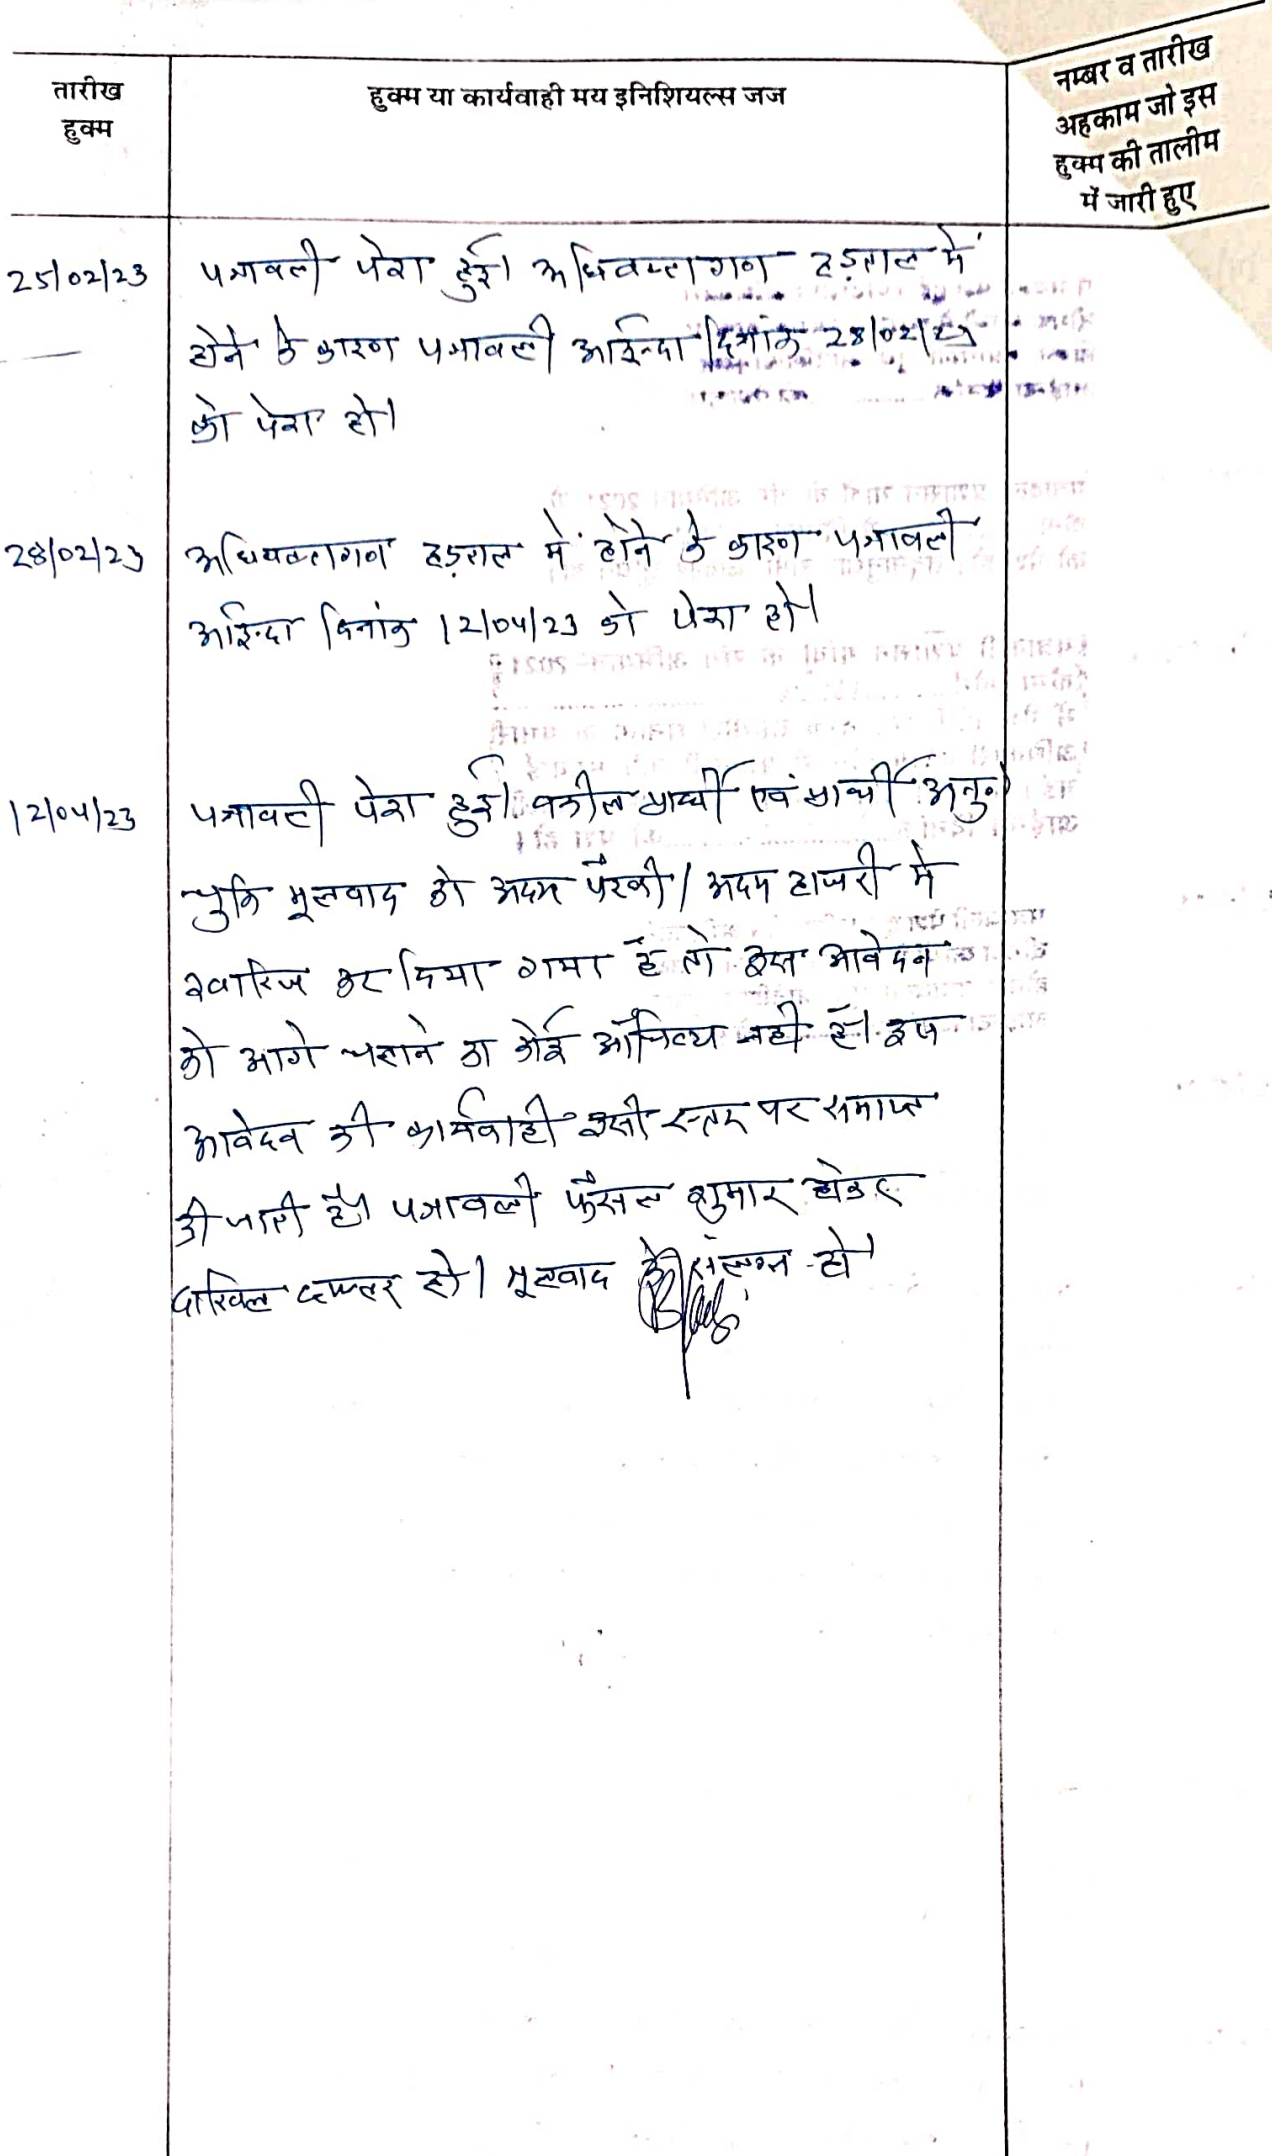 तारीख
हुक्म
हुक्म या कार्यवाही मय इनिशियल्स जज
नम्बर व तारीख
अहकाम जो इस
हुक्म की तालीम
में जारी हुए
25/02/23 पत्रावली पेश हुई। अधिवक्तागण हड़ताल में
होने के कारण पत्रावली आईन्दा दिनांक 28/02/23
को पेश हो।
28/02/23 अधिवक्तागण हड़ताल में होने के कारण पत्रावली
आईन्दा दिनांक 12/04/23 को पेश हो।
12/04/23 पत्रावली पेश हुई। वकील प्रार्थी एवं प्रार्थी अनु०
चुकि मूलवाद को अदम पैरवी / अदम हाजरी में
खारिज कर दिया गया है तो इस आवेदन
को आगे चलाने का कोई औचित्य नही है। इस
आवेदन की कार्यवाही इसी स्तर पर समाप्त
की जाती है। पत्रावली फैसल शुमार होकर
दाखिल दफ्तर हो। मूलवाद के संलग्न हो